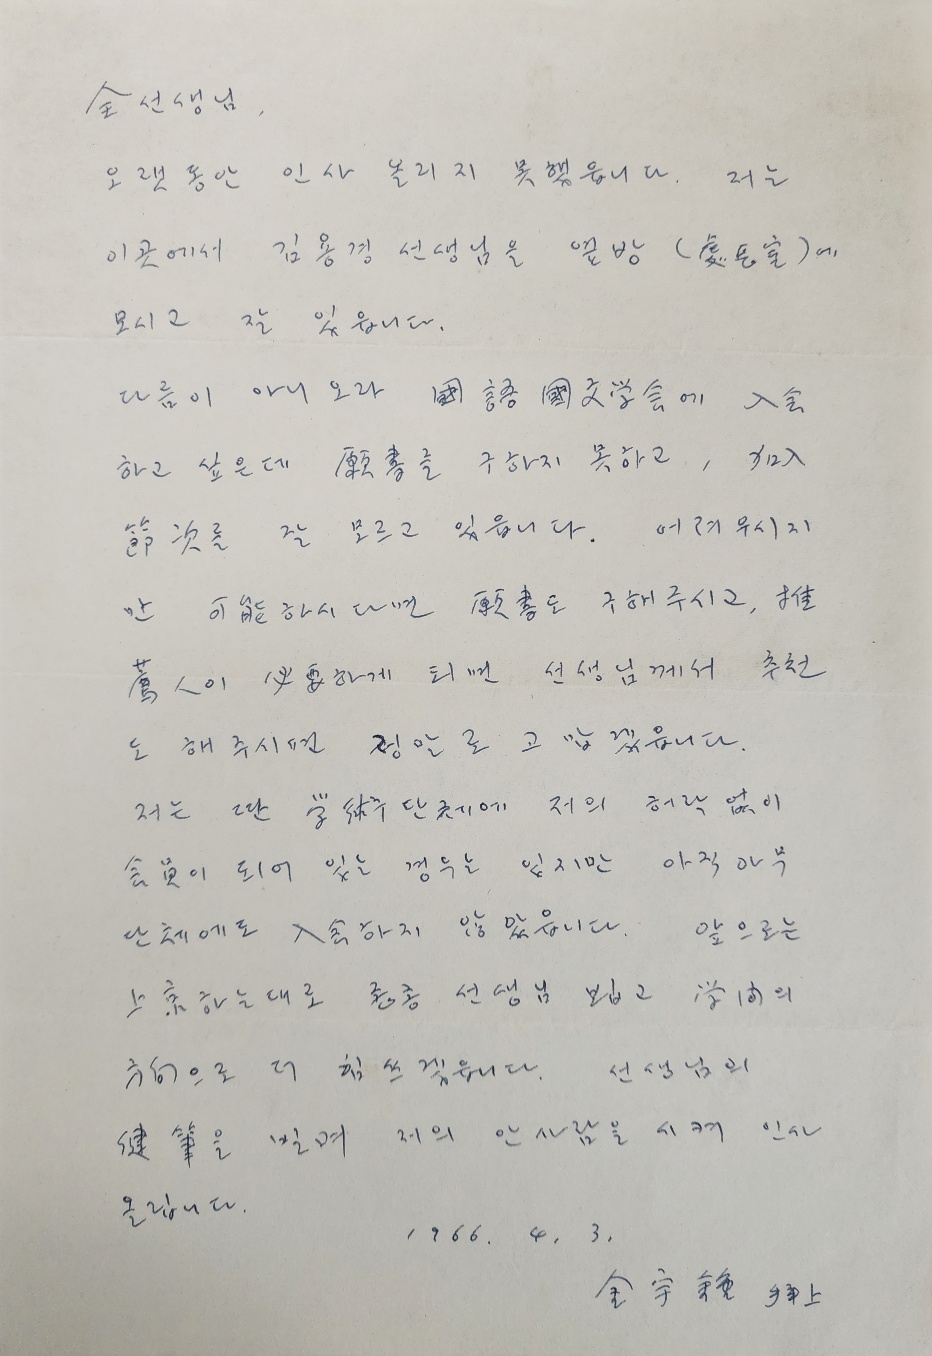 金 선생님,
오랫동안 인사 올리지 못했읍니다. 저는
이곳에서 김용경 선생님을 옆방 (處長室)에
모시고 잘 있읍니다.
다름이 아니오라 國語國文学会에 入会
하고 싶은데 願書를 구하지 못하고, 加入
節次를 잘 모르고 있읍니다. 어려우시지
만 可能하시다면 願書도 구해주시고, 推
薦人이 必要하게 되면 선생님께서 추천
도 해주시면 정말로 고맙겠읍니다.
저는 딴 学術단체에 저의 허락없이
会員이 되어 있는 경우는 있지만 아직 아무
단체에도 入会하지 않았읍니다. 앞으로는
上京하는대로 종종 선생님 뵙고 学問의
方向으로 더 힘쓰겠읍니다. 선생님의
健筆을 빌며 저의 안사람을 시켜 인사
올립니다.
1966. 4. 3.
金宇鍾 拜上